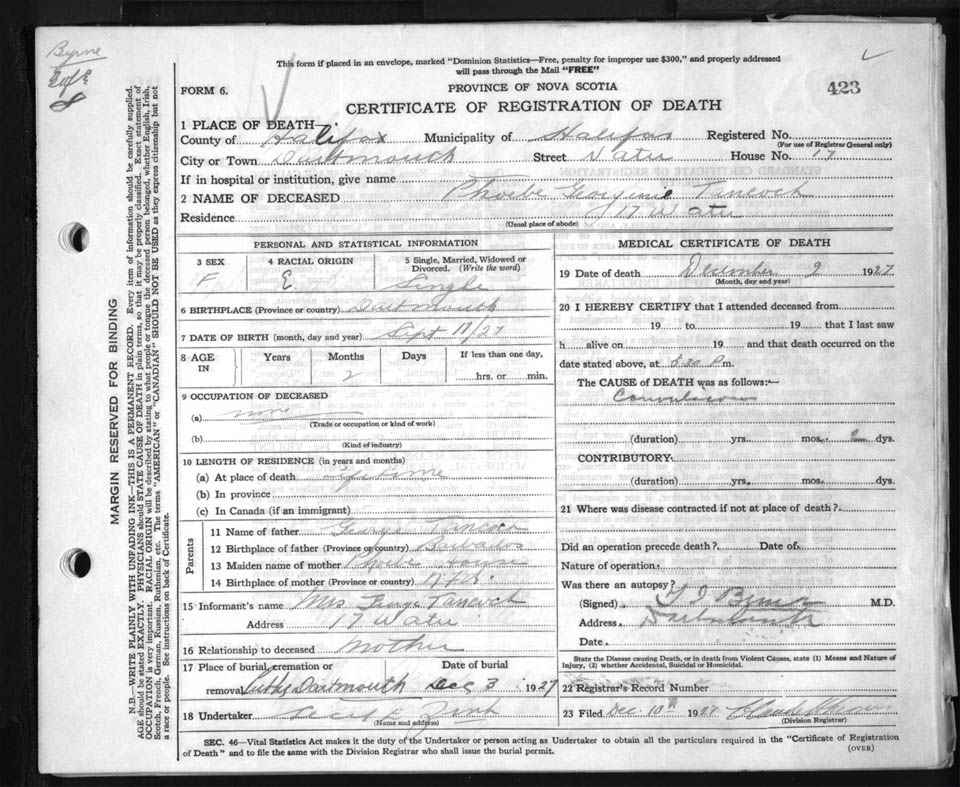 Byrne
This form if placed in an envelope, marked "Dominion Statistics—Free, penalty for improper use $300," and properly addressed
will pass through the Mail "FREE"
FORM 6.
PROVINCE OF NOVA SCOTIA
423
CERTIFICATE OF REGISTRATION OF DEATH
1 PLACE OF DEATH—
County of Halifax Municipality of Halifax Registered No.
(For use of Registrar General only)
City or Town Dartmouth Street Water House No. 17
If in hospital or institution, give name
2 NAME OF DECEASED Phoebe Georginie Tancock
Residence 17 Water
(Usual place of abode)
PERSONAL AND STATISTICAL INFORMATION
3 SEX 4 RACIAL ORIGIN 5 Single, Married, Widowed or
Divorced. (Write the word)
F E. Single
6 BIRTHPLACE (Province or country) Dartmouth
7 DATE OF BIRTH (month, day and year) Sept
8 AGE IN Years Months Days If less than one day,
2 hrs. or min.
9 OCCUPATION OF DECEASED
(a) none
(Trade or occupation or kind of work)
(b)
(Kind of industry)
10 LENGTH OF RESIDENCE (in years and months)
(a) At place of death Life time
(b) In province
(c) In Canada (if an immigrant)
Parents
11 Name of father George Tancock
12 Birthplace of father (Province or country) Barbados
13 Maiden name of mother Phoebe
14 Birthplace of mother (Province or country)
15 Informant's name Mrs George Tancock
Address 17 Water
16 Relationship to deceased Mother
17 Place of burial, cremation or Date of burial
removal Dartmouth Dec 3 1927
18 Undertaker Zink
(Name and address)
MEDICAL CERTIFICATE OF DEATH
19 Date of death December 2 1927
(Month, day and year)
20 I HEREBY CERTIFY that I attended deceased from
19 to 19 that I last saw
h alive on 19 and that death occurred on the
date stated above, at 5.30 P m.
The CAUSE of DEATH was as follows:—
Convulsions
(duration) yrs. mos. 2 dys.
CONTRIBUTORY.
(duration) yrs. mos. dys.
21 Where was disease contracted if not at place of death?
Did an operation precede death? Date of
Nature of operation.
Was there an autopsy?
(Signed) Byrne M.D.
Address Dartmouth
Date
State the Disease causing Death, or in death from Violent Causes, state (1) Means and Nature of
Injury, (2) whether Accidental, Suicidal or Homicidal.
22 Registrar's Record Number
23 Filed Dec. 10th 1927
(Division Registrar)
SEC. 46—Vital Statistics Act makes it the duty of the Undertaker or person acting as Undertaker to obtain all the particulars required in the "Certificate of Registration
of Death" and to file the same with the Division Registrar who shall issue the burial permit.
(OVER)
MARGIN RESERVED FOR BINDING
N.B.—WRITE PLAINLY WITH UNFADING INK—THIS IS A PERMANENT RECORD. Every item of information should be carefully supplied.
AGE should be stated EXACTLY. PHYSICIANS should STATE CAUSE OF DEATH in plain terms, so that it may be properly classified. Exact statement of
OCCUPATION is very important. RACIAL ORIGIN will be described by stating to what people or tongue the deceased person belonged, whether English, Irish,
Scotch, French, German, Russian, Ruthenian, etc. The terms "AMERICAN" or "CANADIAN" SHOULD NOT BE USED as they express citizenship but not
a race or people. See instructions on back of Certificate.